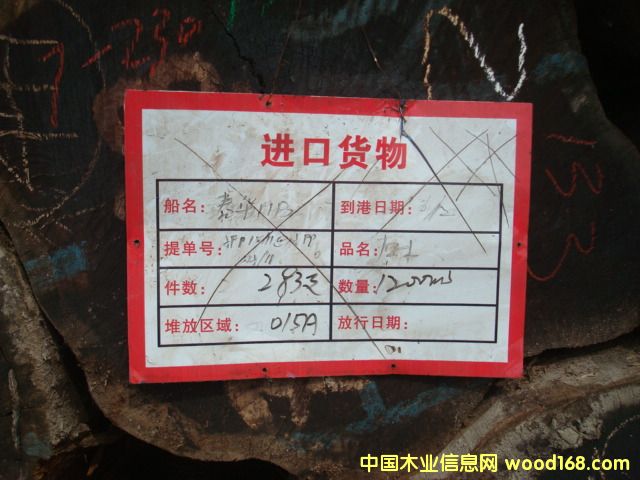 7-230
N
进口货物
船名：
到港日期：
提单号：
品名：
件数： 283支
数量： 1200m³
堆放区域： 015A
放行日期：
133
中国木业信息网 wood168.com